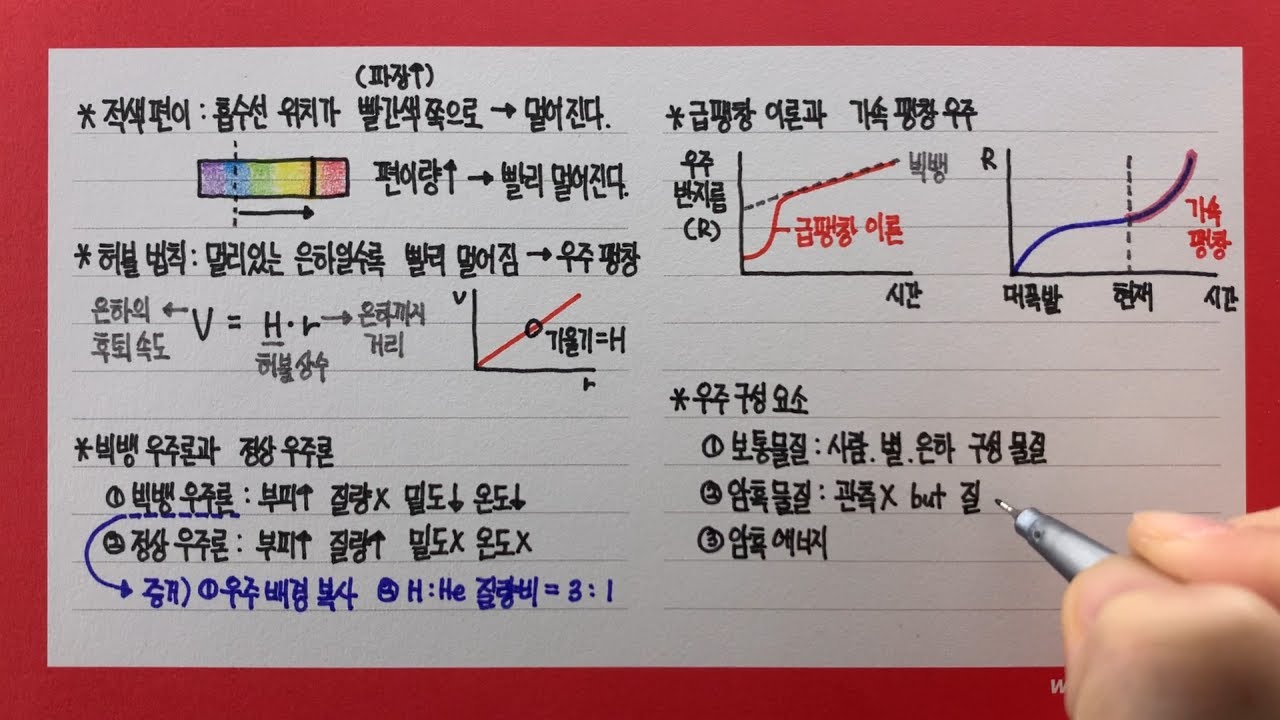 (파장↑)
* 적색편이 : 흡수선 위치가 빨간색 쪽으로 → 멀어진다.
편이량↑ → 빨리 멀어진다.
* 허블 법칙 : 멀리있는 은하일수록 빨리 멀어짐 → 우주 팽창
은하의 후퇴 속도 ← V = H·r → 은하까지 거리
허블상수
V
기울기=H
r
* 빅뱅 우주론과 정상 우주론
① 빅뱅 우주론 : 부피↑ 질량X 밀도↓ 온도↓
② 정상 우주론 : 부피↑ 질량↑ 밀도X 온도X
증거) ① 우주 배경 복사 ② H:He 질량비 = 3 : 1
* 급팽창 이론과 가속 팽창 우주
우주
반지름
(R)
빅뱅
급팽창 이론
시간
R
가속
팽창
대폭발
현재
시간
* 우주 구성 요소
① 보통물질 : 사람. 별. 은하 구성 물질
② 암흑 물질 : 관측X but 질
③ 암흑 에너지